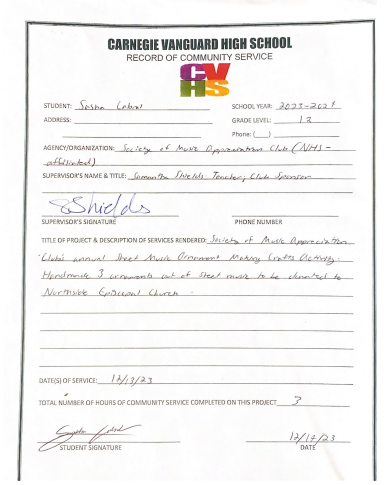 CARNEGIE VANGUARD HIGH SCHOOL
RECORD OF COMMUNITY SERVICE
CV
HS
STUDENT: Sasha Cabral SCHOOL YEAR: 2023-2024
ADDRESS: GRADE LEVEL: 12
Phone: ( )
AGENCY/ORGANIZATION: Society of Music Appreciation Club (NHS-
affiliated)
SUPERVISOR'S NAME & TITLE: Samantha Shields, Teacher, Club Sponsor
SShields
SUPERVISOR'S SIGNATURE PHONE NUMBER
TITLE OF PROJECT & DESCRIPTION OF SERVICES RENDERED: Society of Music Appreciation
Club's annual Sheet Music Ornament Making Crafts Activity.
Handmade 3 ornaments out of sheet music to be donated to
Northside Episcopal Church.
DATE(S) OF SERVICE: 12/13/23
TOTAL NUMBER OF HOURS OF COMMUNITY SERVICE COMPLETED ON THIS PROJECT 3
STUDENT SIGNATURE DATE
12/17/23